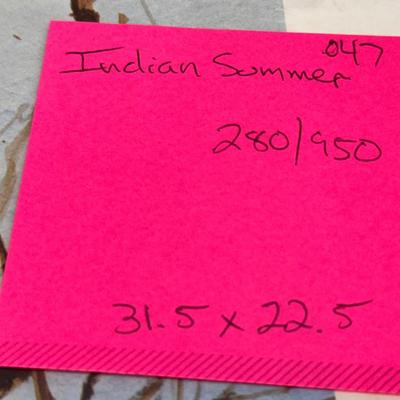 047
Indian Summer
280/950
31.5 x 22.5